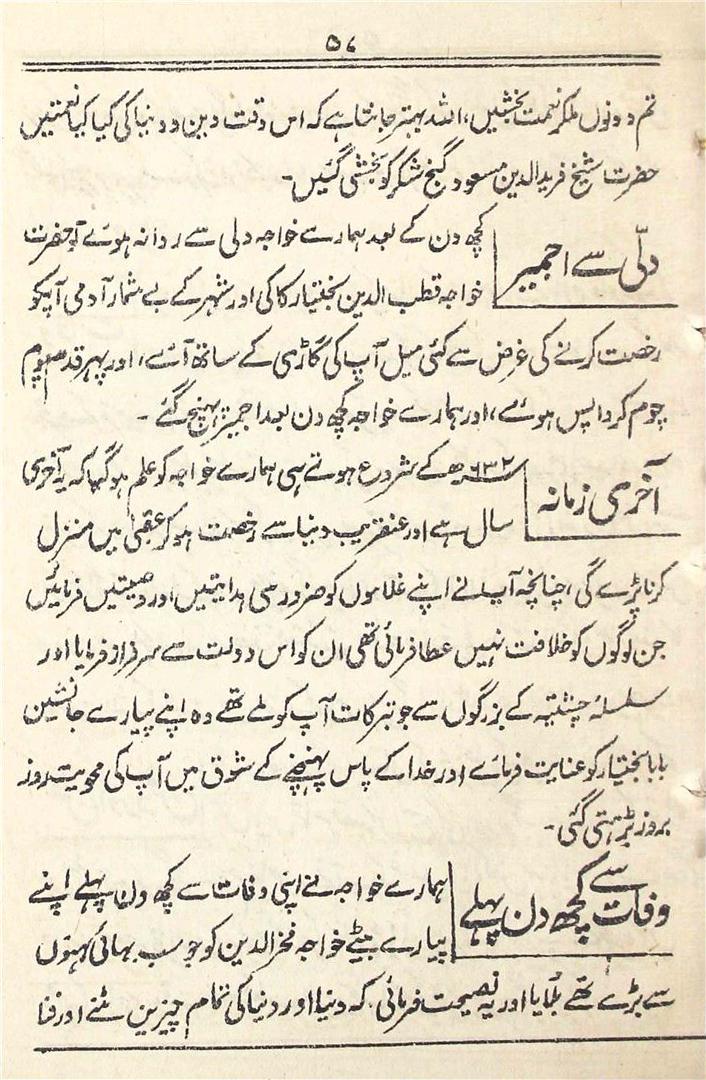 ۵۸
تم دونوں ملکر نعمت بخشیں، اللہ بہتر جانتا ہے کہ اس وقت دین و دنیا کی کیا کیا نعمتیں
حضرت شیخ فرید الدین مسعود گنج شکر کو بخشی گئیں۔
دلّی سے اجمیر
کچھ دن کے بعد ہمارے خواجہ دلی سے روانہ ہوئے تو حضرت
خواجہ قطب الدین بختیار کاکی اور شہر کے بے شمار آدمی آپکو
رخصت کرنے کی غرض سے کئی میل آپ کی گاڑی کے ساتھ آئے، اور پھر قدم
چوم کر واپس ہوئے، اور ہمارے خواجہ کچھ دن بعد اجمیر پہنچ گئے۔
آخری زمانہ
۶۳۲ھ کے شروع ہوتے ہی ہمارے خواجہ کو علم ہو گیا کہ یہ آخری
سال ہے اور عنقریب دنیا سے رخصت ہو کر عقبیٰ میں منزل
کرنا پڑے گی، چنانچہ آپ نے اپنے غلاموں کو ضروری ہدایتیں اور وصیتیں فرمائیں
جن لوگوں کو خلافت نہیں عطا فرمائی تھی ان کو اس دولت سے سرفراز فرمایا اور
سلسلۂ چشتیہ کے بزرگوں سے جو تبرکات آپ کو ملے تھے وہ اپنے پیارے جانشین
بابا بختیار کو عنایت فرمائے اور خدا کے پاس پہنچنے کے شوق میں آپ کی محویت روز
بروز بڑہتی گئی۔
وفات سے کچھ دن پہلے
ہمارے خواجہ نے اپنی وفات سے کچھ دن پہلے اپنے
پیارے بیٹے خواجہ فخر الدین کو جو سب بھائی بہنوں
سے بڑے تھے بُلایا اور یہ نصیحت فرمائی کہ دنیا اور دنیا کی تمام چیزیں مٹنے اور فنا